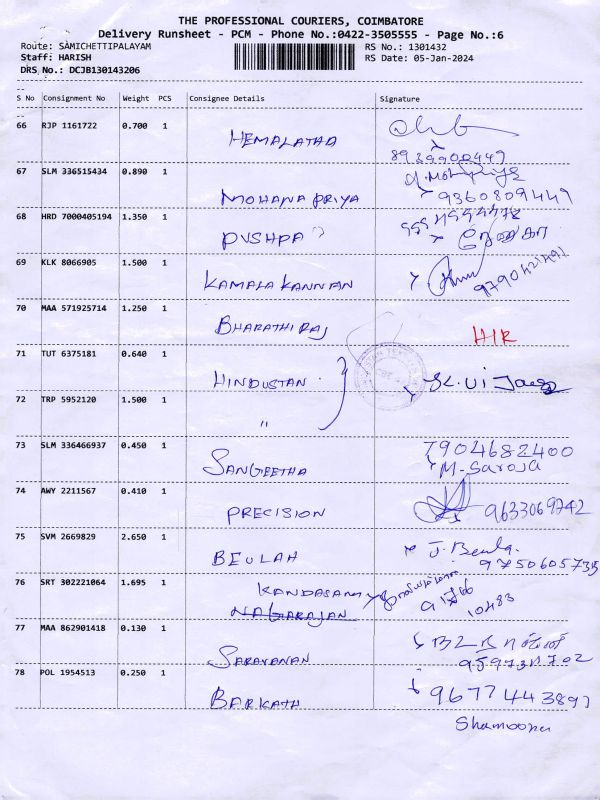 THE PROFESSIONAL COURIERS, COIMBATORE
Delivery Runsheet - PCM - Phone No.:0422-3505555 - Page No.:6
Route: SAMICHETTIPALAYAM RS No.: 1301432
Staff: HARISH RS Date: 05-Jan-2024
DRS No.: DCJB130143206
S No Consignment No Weight PCS Consignee Details Signature
66 RJP 1161722 0.700 1
HEMALATHA
67 SLM 336515434 0.890 1
MOHANA PRIYA 9360809449
68 HRD 7000405194 1.350 1
PUSHPA
69 KLK 8066905 1.500 1
KAMALA KANNAN
70 MAA 571925714 1.250 1
BHARATHI RAJ HIR
71 TUT 6375181 0.640 1
HINDUSTAN
72 TRP 5952120 1.500 1
"
73 SLM 336466937 0.450 1 7904682400
SANGEETHA M-Saroja
74 AWY 2211567 0.410 1
PRECISION 9633069742
75 SVM 2669829 2.650 1
BEULAH J. Beula. 9750605735
76 SRT 302221064 1.695 1
KANDASAMY
NAGARAJAN 10483
77 MAA 862901418 0.130 1
SARAVANAN
78 POL 1954513 0.250 1
BARKATH